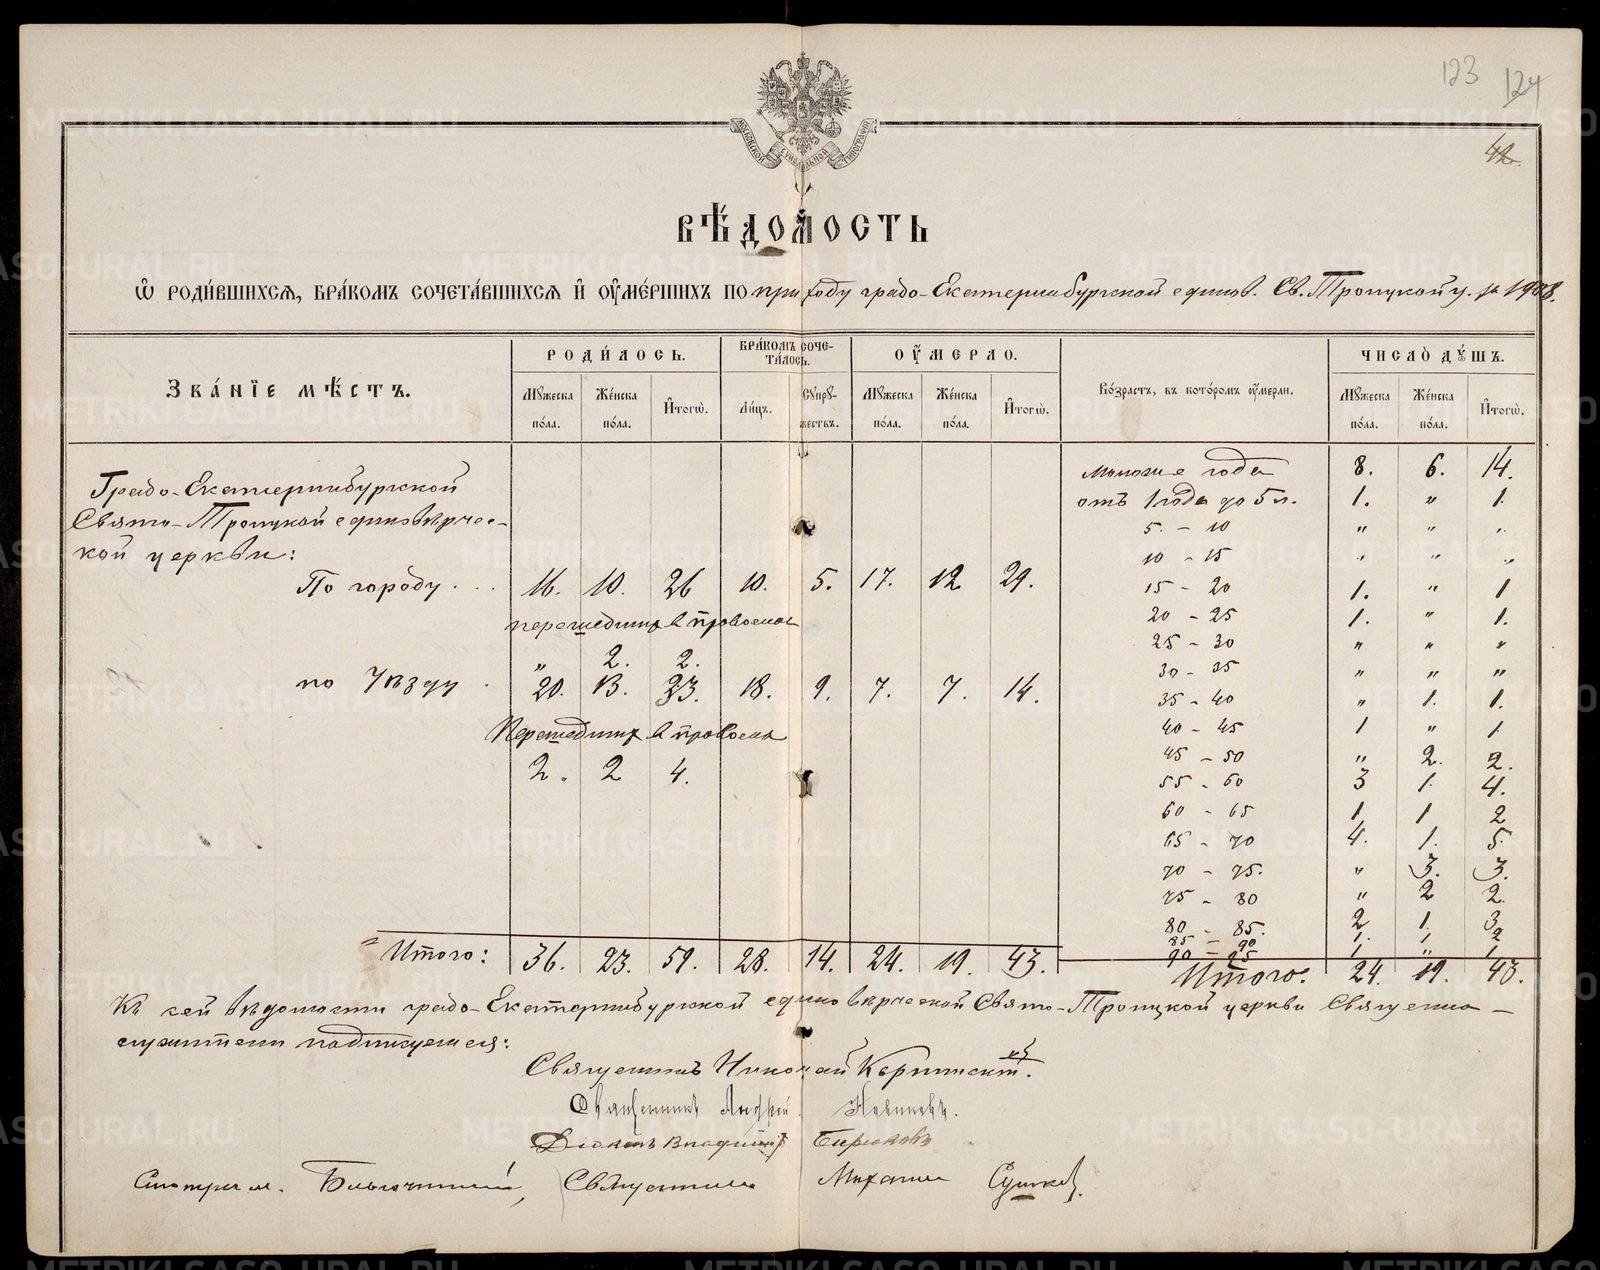 123 124
42.
МОСКОВСКОЙ СѴНОДАЛЬНОЙ ТИПОГРАФІИ
ВѢДОМОСТЬ
Ѡ РОДИВШИХСѦ, БРАКОМЪ СОЧЕТАВШИХСѦ И ОУМЕРШИХЪ ПО приходу градо-Екатеринбургской единов. Св. Троицкой ц. за 1908.
ЗВАНІЕ МѢСТЪ.
РОДИЛОСЬ.
БРАКОМЪ СОЧЕ-
ТАЛОСЬ.
ОУМЕРЛО.
Возрастъ, въ которомъ оумерли.
ЧИСЛО ДУШЪ.
Мужеска пола. Женска пола. Итогѡ. Лицъ. Супру-жествъ. Мужеска пола. Женска пола. Итогѡ. Мужеска пола. Женска пола. Итогѡ.
Градо-Екатеринбургской
Свято-Троицкой единовѣрчес-
кой церкви:
По городу . . . 16. 10. 26 10. 5. 17. 12 29.
перешедших в правосл
„ 2. 2.
по Уѣзду . 20. 13. 33. 18. 9. 7. 7. 14.
Перешедших в правосла
2. 2 4.
Итого: 36. 23. 59. 28. 14. 24. 19. 43.
моложе года 8. 6. 14.
отъ 1 года до 5 л. 1. „ 1.
5. - 10 „ „ „
10 - 15 „ „ „
15 - 20 1. „ 1
20 - 25 1. „ 1.
25 - 30 „ „ „
30 - 35 „ „ „
35 - 40 „ 1. 1.
40 - 45 1 „ 1
45 - 50 „ 2. 2.
55 - 60 3 1. 4.
60 - 65 1 1 2
65 - 70 4. 1. 5.
70 - 75. „ 3. 3.
75 - 80 „ 2 2.
80 - 85. 2 1. 3
85 - 90 1. 1. 2
90 - 95 1 „ 1
Итого: 24. 19. 43.
Къ сей вѣдомости градо-Екатеринбургской единовѣрческой Свято-Троицкой церкви Священно-
служители подписуемся:
Священникъ Николай
Священникъ Андрей Новиковъ.
Діаконъ Владиміръ Бирюковъ
Смотрѣлъ. Благочинный, Священникъ Михаилъ Сушковъ.
METRIKI.GASO-URAL.RU